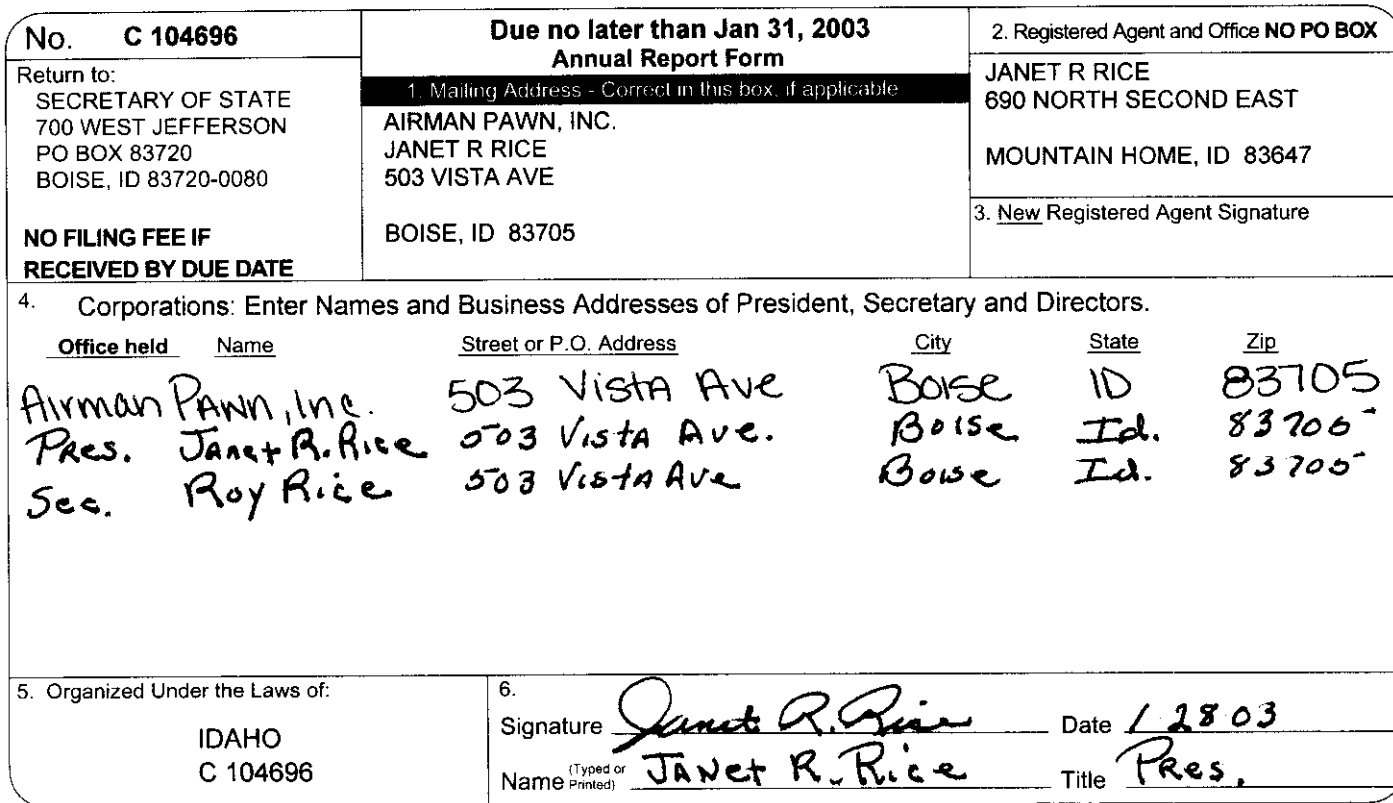 No. C 104696
Return to:
SECRETARY OF STATE
700 WEST JEFFERSON
PO BOX 83720
BOISE, ID 83720-0080
NO FILING FEE IF
RECEIVED BY DUE DATE
Due no later than Jan 31, 2003
Annual Report Form
1. Mailing Address - Correct in this box, if applicable
AIRMAN PAWN, INC.
JANET R RICE
503 VISTA AVE
BOISE, ID 83705
2. Registered Agent and Office NO PO BOX
JANET R RICE
690 NORTH SECOND EAST
MOUNTAIN HOME, ID 83647
3. New Registered Agent Signature
4. Corporations: Enter Names and Business Addresses of President, Secretary and Directors.
Office held Name Street or P.O. Address City State Zip
Airman Pawn, Inc. 503 Vista Ave Boise ID 83705
Pres. Janet R. Rice 503 Vista Ave. Boise Id. 83705
Sec. Roy Rice 503 Vista Ave Boise Id. 83705
5. Organized Under the Laws of:
IDAHO
C 104696
6.
Signature Janet R. Rice Date 1 28 03
Name (Typed or Printed) Janet R. Rice Title Pres.